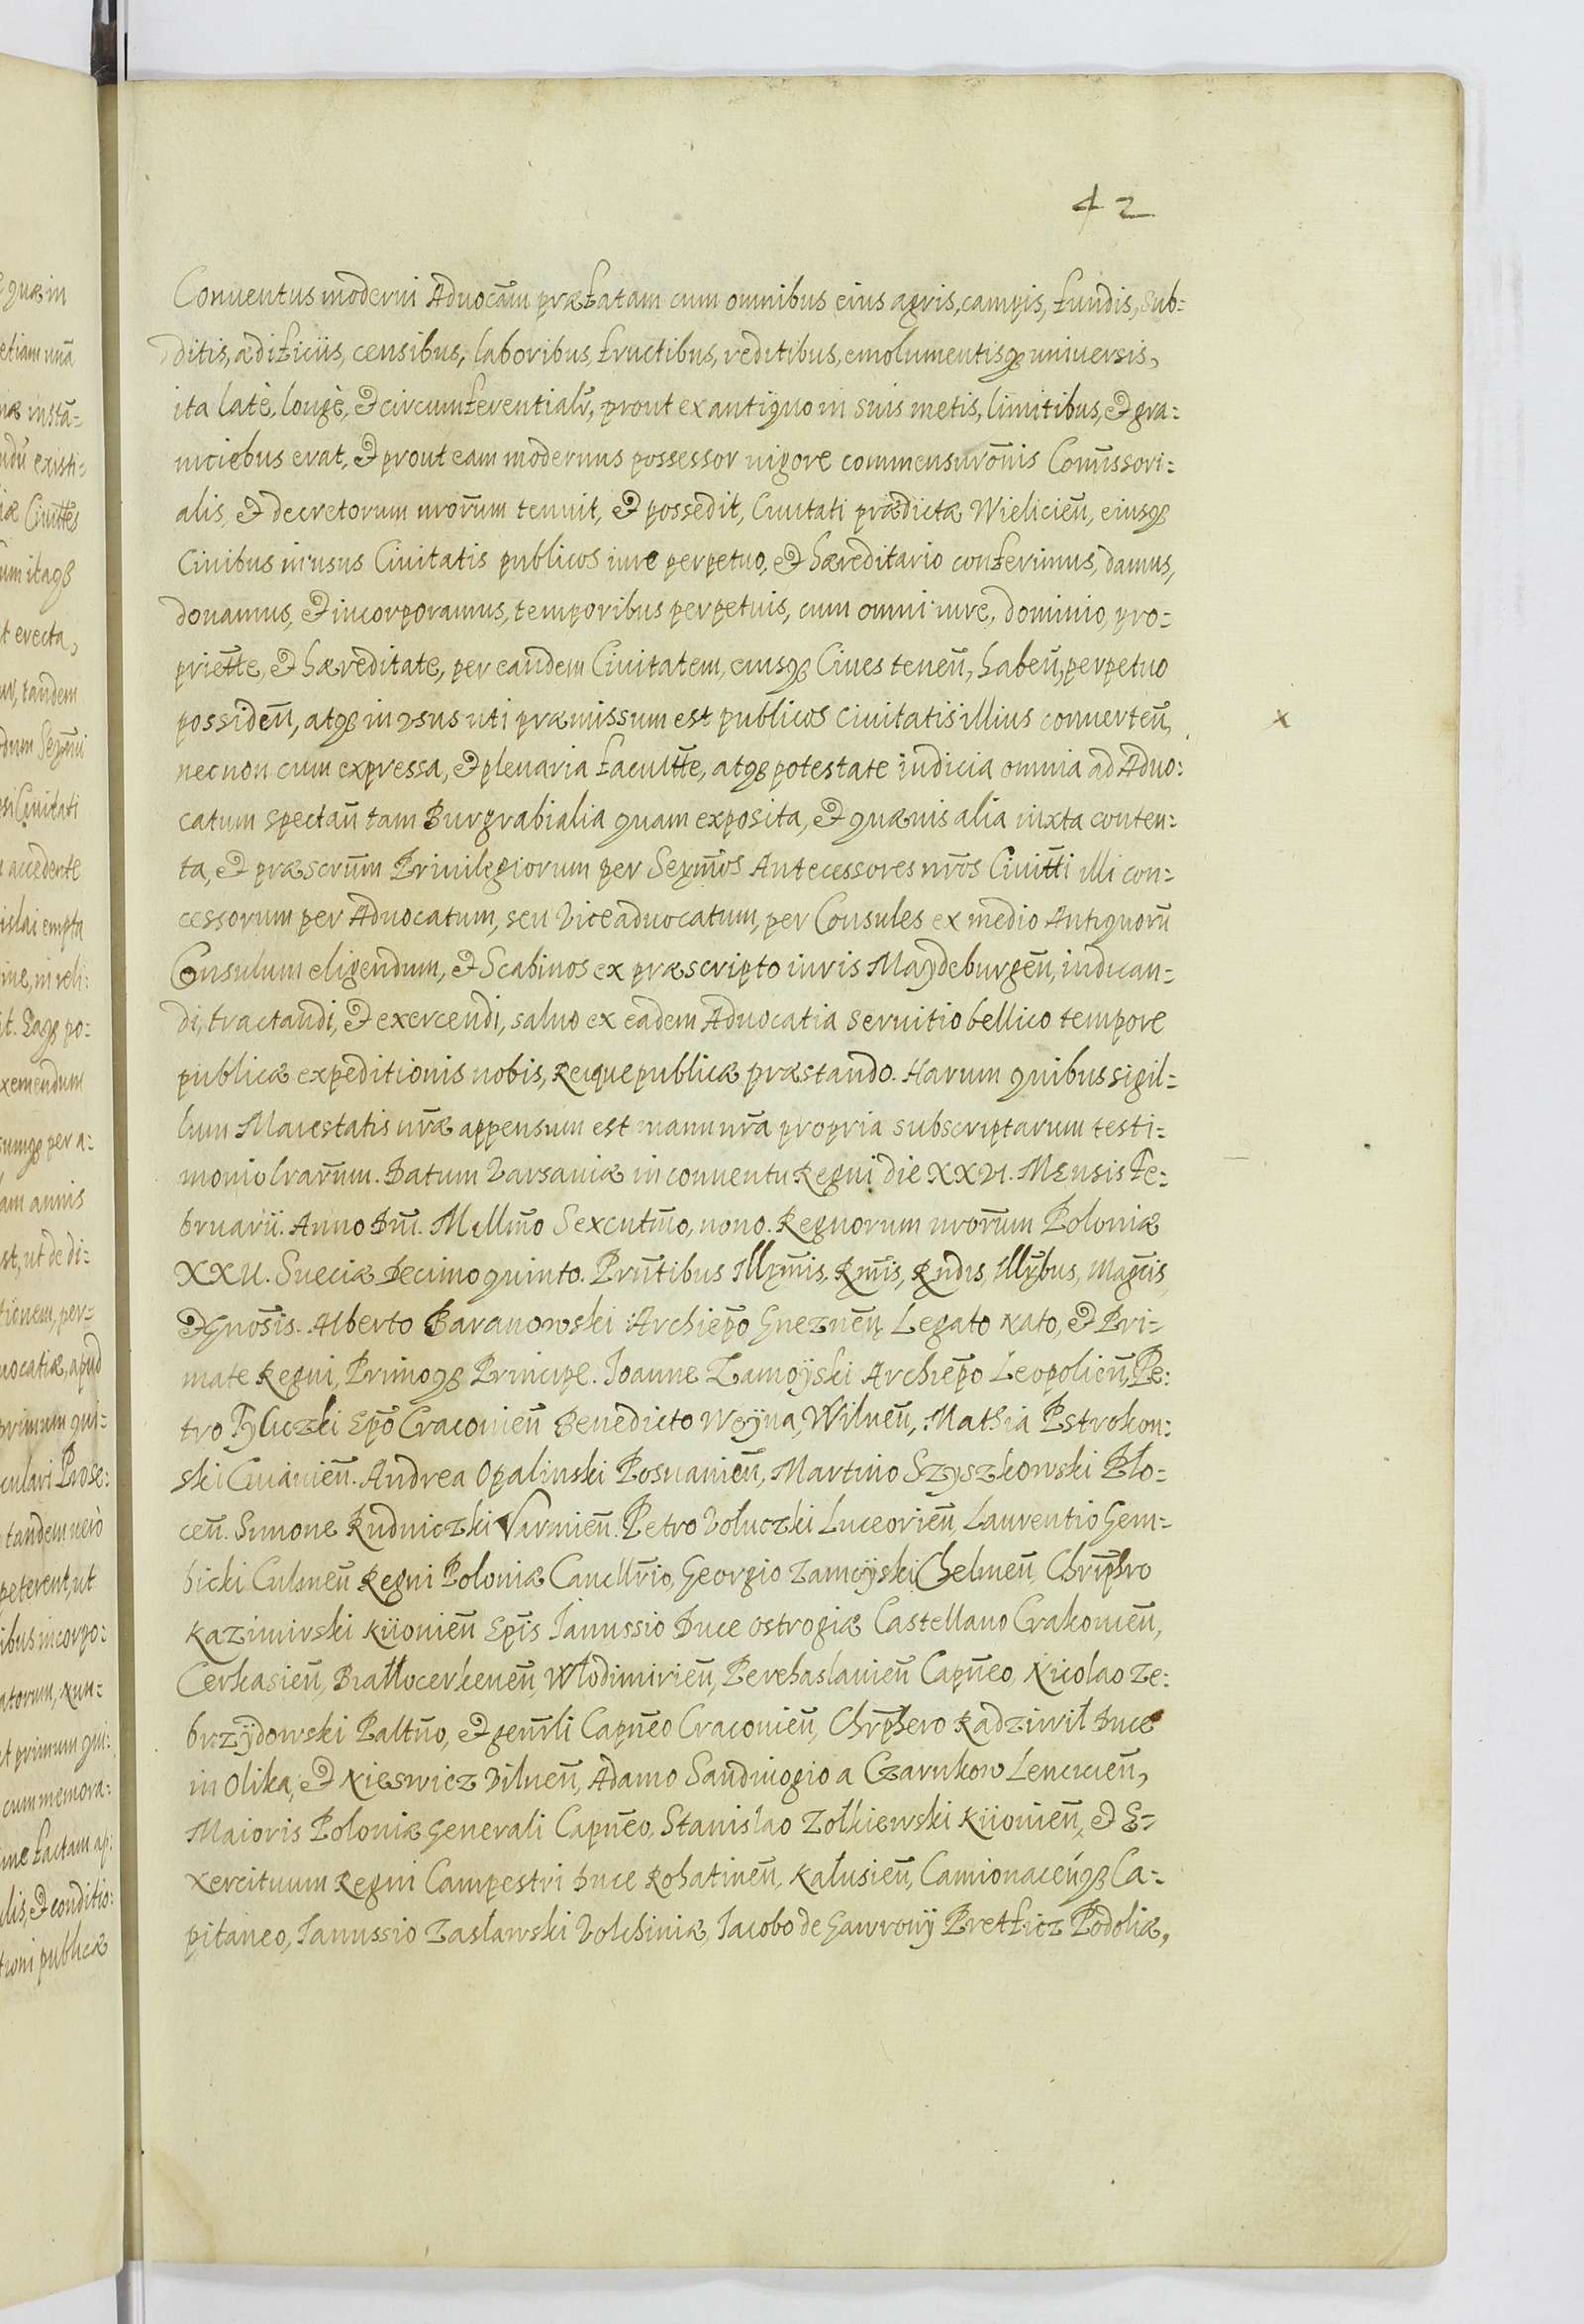 42
Conuentus moderni Aduocam̄ præfatam cum omnibus eius agris, campis, fundis, sub=
ditis, ædificiis, censibus, laboribus, fructibus, reditibus, emolumentisq; uniuersis,
ita latè, longè, & circumferentialr̄, prout ex antiquo in suis metis, limitibus, & gra=
niciebus erat, & prout eam modernus possessor uigore commensurōnis Com̄issori=
alis, & decretorum nrōrum tenuit, & possedit, Ciuitati prædictæ Wielicien̄, eiusq;
Ciuibus in usus Ciuitatis publicos iure perpetuo, & hæreditario conferimus, damus,
donamus, & incorporamus, temporibus perpetuis, cum omni iure, dominio, pro=
priet̄te, & hæreditate, per eandem Ciuitatem, eiusq; Ciues tenen̄, haben̄, perpetuo
possiden̄, atq; in usus uti præmissum est publicos Ciuitatis illius conuerten̄,
x
necnon cum expressa, & plenaria facult̄te, atq; potestate iudicia omnia ad Aduo:
catum spectan̄ tam Burgrabialia quam exposita, & quæuis alia iuxta conten=
ta, & præscrip̄tum Priuilegiorum per Serm̄os Antecessores nrōs Ciuit̄ti illi con=
cessorum per Aduocatum, seu Viceaduocatum, per Consules ex medio Antiquorū
Consulum eligendum, & Scabinos ex præscripto iuris Maydeburgen̄, iudican=
di, tractandi, & exercendi, saluo ex eadem Aduocatia seruitio bellico tempore
publicæ expeditionis nobis, Reique publicæ præstando. Harum quibus sigil=
lum Maiestatis nrǣ appensum est manu nrā propria subscriptarum testi=
monio lrārum. Datum Varsauiæ in conuentu Regni die XXVI. Mensis Fe=
bruarii. Anno Dn̄i. Millm̄o Sexcentm̄o, nono. Regnorum nrōrum Poloniæ
XXII. Sueciæ Decimo quinto. Prn̄tibus Illm̄is, Rm̄is, Rn̄dis, Illībus, Magc̄is,
& Gnōsis. Alberto Baranowski Archiep̄o Gneznen̄, Legato Nato, & Pri=
mate Regni, Primoq; Principe. Joanne Zamoyski Archiep̄o Leopolien̄, Pe:
tro Tyliczki Ep̄o Cracouien̄ Benedicto Woyna, Wilnen̄, Mathia Pstrokon:
ski Cuiauien̄. Andrea Opalinski Posnanien̄, Martino Szyszkowski Plo=
cen̄. Simone Rudniczki Varmien̄. Petro Voluczki Luceorien̄, Laurentio Gem=
bicki Culmen̄ Regni Poloniæ Cancllr̄io, Georgio Zamoyski Chelmen̄, Chrīphro
Kazimirski Kiiouien̄ Ep̄is Janussio Duce Ostrogiæ Castellano Crakouien̄,
Cerkasien̄, Białłocerkenen̄, Włodimirien̄, Perehaslauien̄ Capn̄eo, Nicolao Ze:
brzydowski Paltn̄o, & genr̄li Capn̄eo Cracouien̄, Chrp̄hero Radziwił Duce
in Olika, & Nieswicz Vilnen̄, Adamo Sandiuogio a Czarnkow Lencicien̄,
Maioris Poloniæ Generali Capn̄eo, Stanislao Zołkiewski Kiiouien̄, & E=
xercituum Regni Campestri Duce Rohatinen̄, Kałusien̄, Camionacen̄q; Ca=
pitaneo, Janussio Zasławski Volhiniæ, Jacobo de Gawrony Pretficz Podoliæ,